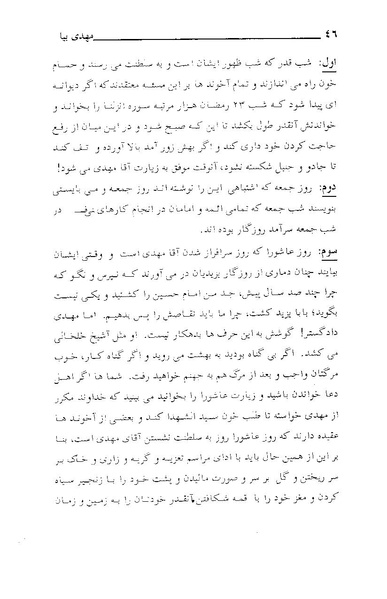 ۴۶ مهدی بیا
اول: شب قدر که شب ظهور ایشان است و به سلطنت می رسند و حمام
خون راه می اندازند و تمام آخوند ها بر این مسئه معتقدندکه اگر دیوانه
ای پیدا شود که شب ۲۳ رمضان هزار مرتبه سوره انزلنا را بخواند و
خواندنش آنقدر طول بکشد تا این که صبح شود و در این میان از رفع
حاجت کردن خود داری کند و اگر بهش زور آمد بالا آورده و تف کند
تا جادو و جنبل شکسته نشود، آنوقت موفق به زیارت آقا مهدی می شود!
دوم: روز جمعه که اشتباهی این را نوشته اند روز جمعه و می بایستی
بنویسند شب جمعه که تمامی ائمه و امامان در انجام کارهای در
شب جمعه سرآمد روزگار بوده اند.
سوم: روز عاشورا که روز سرافراز شدن آقا مهدی است و وقتی ایشان
بیایند چنان دماری از روزگار یزیدیان در می آورند که نپرس و نگو که
چرا چند صد سال پیش، جد من امام حسین را کشتید و یکی نیست
بگوید؛ بابا یزید کشت، چرا ما باید تقاصش را پس بدهیم. اما مهدی
دادگستر! گوشش به این حرف ها بدهکار نیست. او مثل آشیخ خلخالی
می کشد. اگر بی گناه بودید به بهشت می روید و اگر گناه کار، خوب
مرگتان واجب و بعد از مرگ هم به جهنم خواهید رفت. شما ها اگر اهل
دعا خواندن باشید و زیارت عاشورا را بخوانید می بینید که خداوند مکرر
از مهدی خواسته تا طلب خون سید الشهدا کند و بعضی از آخوند ها
عقیده دارند که روز عاشورا روز به سلطنت نشستن آقای مهدی است، بنا
بر این از همین حال باید با ادای مراسم تعزیه و گریه و زاری و خاک بر
سر ریختن و گل بر سر و صورت مالیدن و پشت خود را با زنجیر سیاه
کردن و مغز خود را با قمه شکافتن آنقدر خودتان را به زمین و زمان